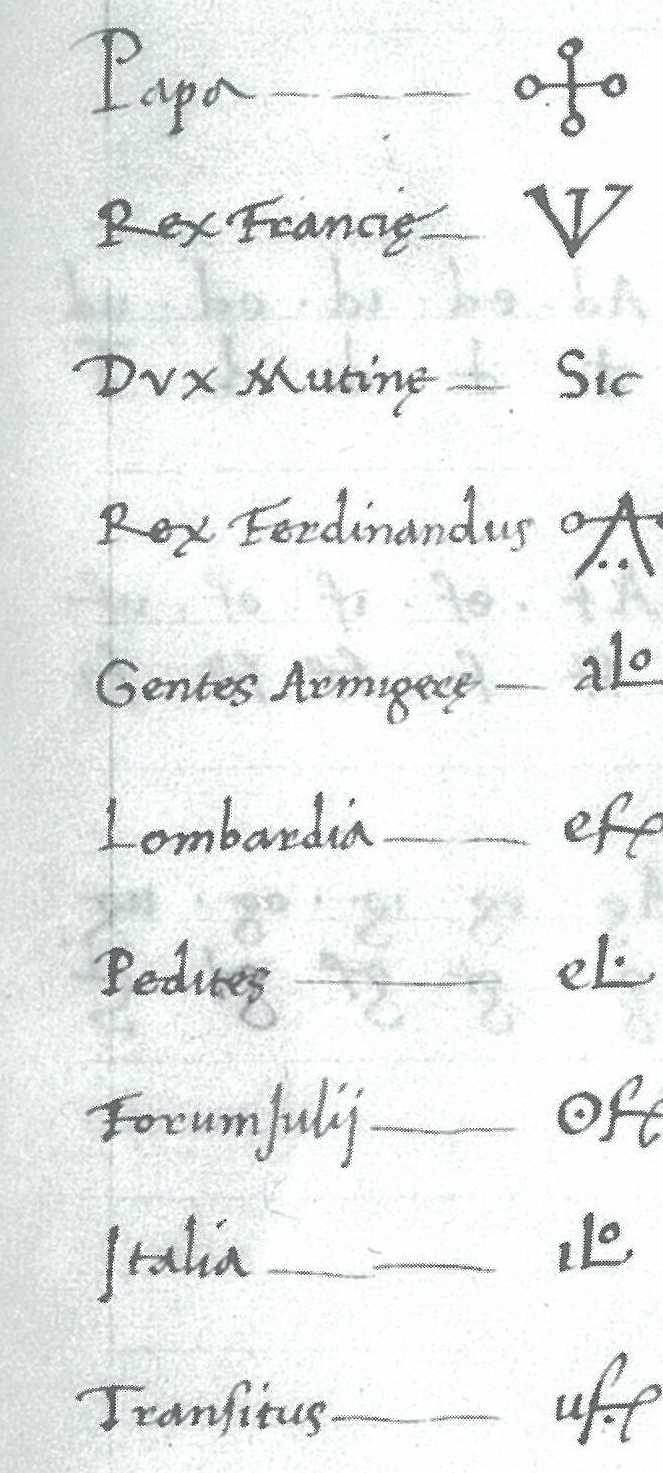 Papa
Rex Francię
Dvx Mutinę Sic
Rex Ferdinandus
Gentes Armigerę
Lombardia
Pedites
Forum Julij
Italia
Transitus